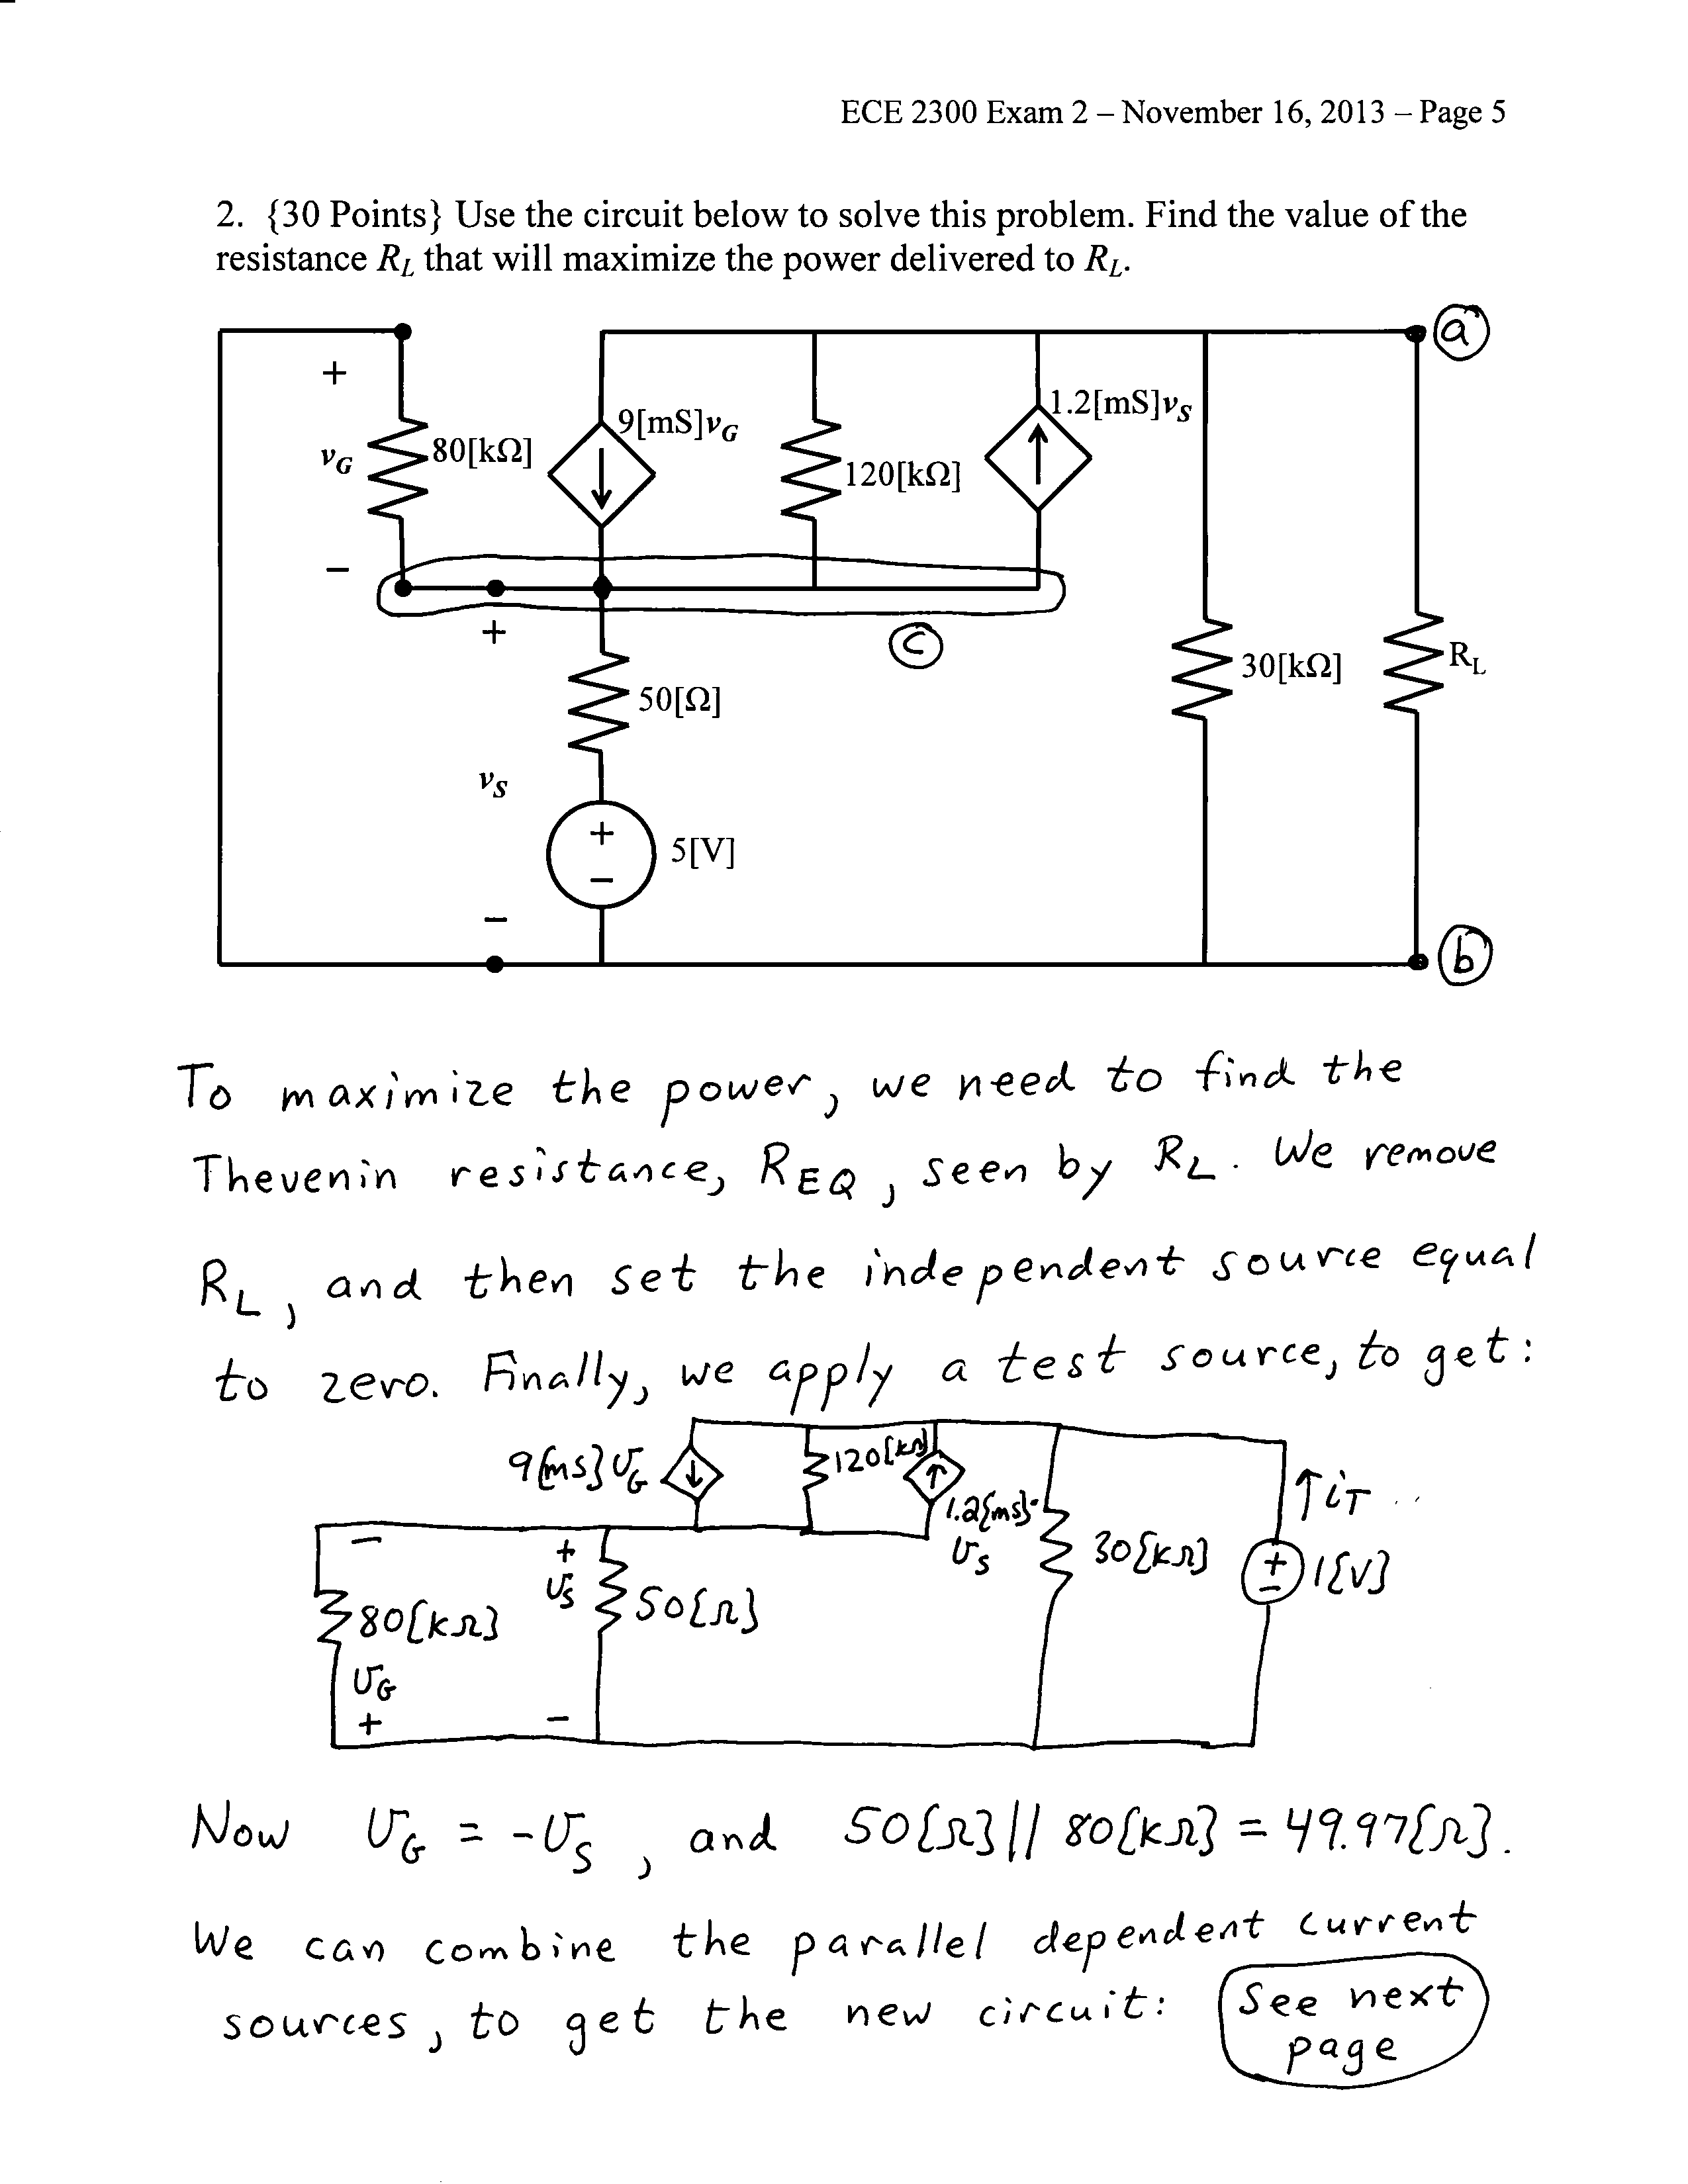 ECE 2300 Exam 2 – November 16, 2013 – Page 5
2. {30 Points} Use the circuit below to solve this problem. Find the value of the
resistance R_L that will maximize the power delivered to R_L.
a
+
1.2[mS]v_S
9[mS]v_G
v_G
80[kΩ]
120[kΩ]
−
+
c
30[kΩ]
R_L
50[Ω]
v_S
+
5[V]
−
−
b
To maximize the power, we need to find the
Thevenin resistance, R_EQ, seen by R_L. We remove
R_L, and then set the independent source equal
to zero. Finally, we apply a test source, to get:
9[mS]v_G
120[kΩ]
↑i_T
1.2[mS]·
v_S
−
+
v_S
30[kΩ]
+
−
1[V]
80[kΩ]
50[Ω]
v_G
+
−
Now v_G = -v_S, and 50[Ω] || 80[kΩ] = 49.97[Ω].
We can combine the parallel dependent current
sources, to get the new circuit:
See next
page